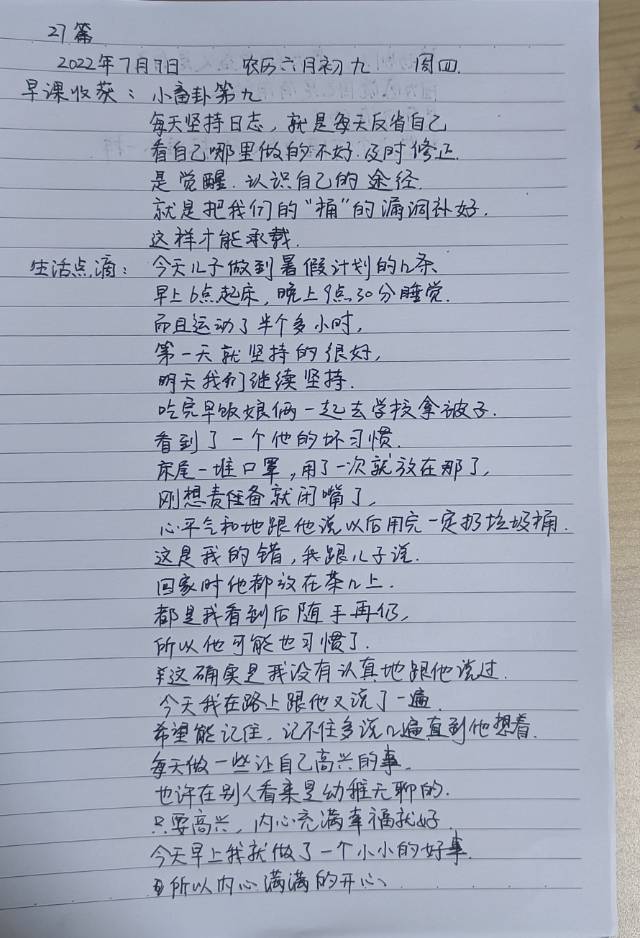 27篇
2022年7月7日 农历六月初九 周四
早课收获：小畜卦第九
每天坚持日志，就是每天反省自己
看自己哪里做的不好.及时修正.
是觉醒.认识自己的途径.
就是把我们的“桶”的漏洞补好.
这样才能承载.
生活点滴：今天儿子做到暑假计划的几条
早上6点起床，晚上9点30分睡觉.
而且运动了半个多小时，
第一天就坚持的很好，
明天我们继续坚持.
吃完早饭娘俩一起去学校拿被子.
看到了一个他的坏习惯.
床尾一堆口罩，用了一次就放在那了，
刚想责怪备就闭嘴了，
心平气和地跟他说以后用完一定扔垃圾桶.
这是我的错，我跟儿子说.
回家时他都放在茶几上.
都是我看到后随手再仍，
所以他可能也习惯了.
这确实是我没有认真地跟他说过.
今天我在路上跟他又说了一遍.
希望能记住，记不住多说几遍直到他想着.
每天做一些让自己高兴的事.
也许在别人看来是幼稚无聊的.
只要高兴，内心充满幸福就好.
今天早上我就做了一个小小的好事.
所以内心满满的开心、